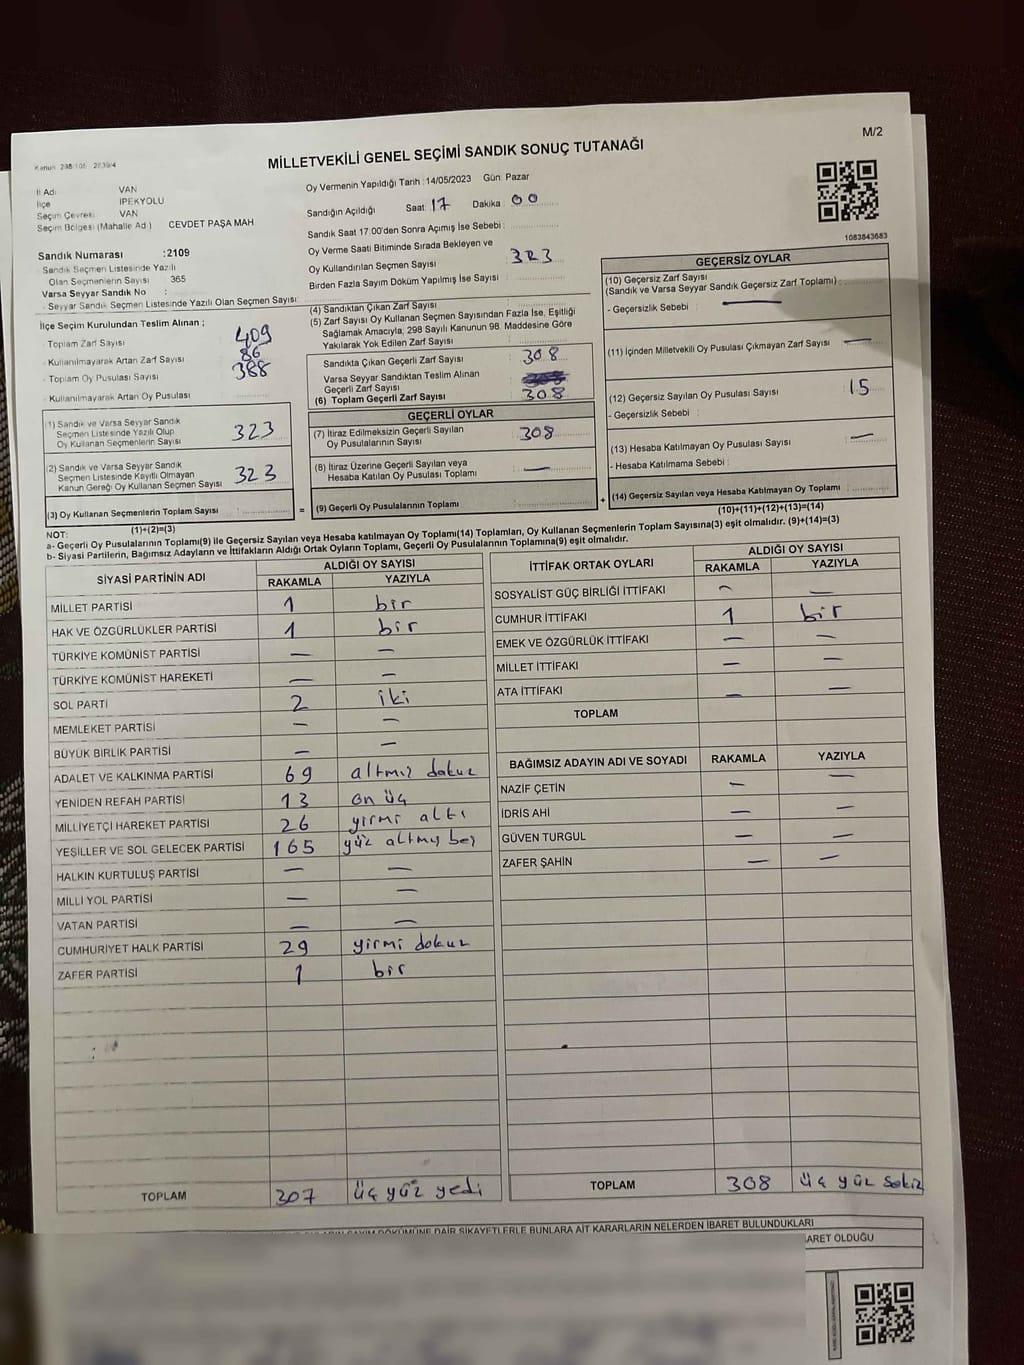 M/2
Kanun: 298/105 - 2839/4
MİLLETVEKİLİ GENEL SEÇİMİ SANDIK SONUÇ TUTANAĞI
İl Adı VAN
İlçe İPEKYOLU
Seçim Çevresi VAN
Seçim Bölgesi (Mahalle Adı) CEVDET PAŞA MAH
Sandık Numarası :2109
Sandık Seçmen Listesinde Yazılı
Olan Seçmenlerin Sayısı : 365
Varsa Seyyar Sandık No :
- Seyyar Sandık Seçmen Listesinde Yazılı Olan Seçmen Sayısı:
Oy Vermenin Yapıldığı Tarih : 14/05/2023 Gün: Pazar
Sandığın Açıldığı Saat: 17 Dakika: 00
Sandık Saat 17.00'den Sonra Açımış İse Sebebi :
Oy Verme Saati Bitiminde Sırada Bekleyen ve
Oy Kullandırılan Seçmen Sayısı : 323
Birden Fazla Sayım Döküm Yapılmış İse Sayısı :
1083843683
İlçe Seçim Kurulundan Teslim Alınan ;
- Toplam Zarf Sayısı : 409
- Kullanılmayarak Artan Zarf Sayısı : 86
- Toplam Oy Pusulası Sayısı : 388
- Kullanılmayarak Artan Oy Pusulası :
(1) Sandık ve Varsa Seyyar Sandık
Seçmen Listesinde Yazılı Olup
Oy Kullanan Seçmenlerin Sayısı : 323
(2) Sandık ve Varsa Seyyar Sandık
Seçmen Listesinde Kayıtlı Olmayan
Kanun Gereği Oy Kullanan Seçmen Sayısı : 323
(3) Oy Kullanan Seçmenlerin Toplam Sayısı :
(1)+(2)=(3)
(4) Sandıktan Çıkan Zarf Sayısı :
(5) Zarf Sayısı Oy Kullanan Seçmen Sayısından Fazla İse, Eşitliği
Sağlamak Amacıyla; 298 Sayılı Kanunun 98. Maddesine Göre
Yakılarak Yok Edilen Zarf Sayısı :
Sandıkta Çıkan Geçerli Zarf Sayısı : 308
Varsa Seyyar Sandıktan Teslim Alınan
Geçerli Zarf Sayısı
(6) Toplam Geçerli Zarf Sayısı : 308
GEÇERLİ OYLAR
(7) İtiraz Edilmeksizin Geçerli Sayılan
Oy Pusulalarının Sayısı : 308
(8) İtiraz Üzerine Geçerli Sayılan veya
Hesaba Katılan Oy Pusulası Toplamı : —
= (9) Geçerli Oy Pusulalarının Toplamı :
GEÇERSİZ OYLAR
(10) Geçersiz Zarf Sayısı
(Sandık ve Varsa Seyyar Sandık Geçersiz Zarf Toplamı) :
- Geçersizlik Sebebi : —
(11) İçinden Milletvekili Oy Pusulası Çıkmayan Zarf Sayısı : —
(12) Geçersiz Sayılan Oy Pusulası Sayısı : 15
- Geçersizlik Sebebi :
(13) Hesaba Katılmayan Oy Pusulası Sayısı : —
- Hesaba Katılmama Sebebi :
+ (14) Geçersiz Sayılan veya Hesaba Katılmayan Oy Toplamı :
(10)+(11)+(12)+(13)=(14)
NOT:
a- Geçerli Oy Pusulalarının Toplamı(9) ile Geçersiz Sayılan veya Hesaba katılmayan Oy Toplamı(14) Toplamları, Oy Kullanan Seçmenlerin Toplam Sayısına(3) eşit olmalıdır. (9)+(14)=(3)
b- Siyasi Partilerin, Bağımsız Adayların ve İttifakların Aldığı Ortak Oyların Toplamı, Geçerli Oy Pusulalarının Toplamına(9) eşit olmalıdır.
SİYASİ PARTİNİN ADI ALDIĞI OY SAYISI
RAKAMLA YAZIYLA
MİLLET PARTİSİ 1 bir
HAK VE ÖZGÜRLÜKLER PARTİSİ 1 bir
TÜRKİYE KOMÜNİST PARTİSİ — —
TÜRKİYE KOMÜNİST HAREKETİ — —
SOL PARTİ 2 iki
MEMLEKET PARTİSİ — —
BÜYÜK BİRLİK PARTİSİ — —
ADALET VE KALKINMA PARTİSİ 69 altmız dokuz
YENİDEN REFAH PARTİSİ 13 on üç
MİLLİYETÇİ HAREKET PARTİSİ 26 yirmi altı
YEŞİLLER VE SOL GELECEK PARTİSİ 165 yüz altmış beş
HALKIN KURTULUŞ PARTİSİ — —
MİLLİ YOL PARTİSİ — —
VATAN PARTİSİ — —
CUMHURİYET HALK PARTİSİ 29 yirmi dokuz
ZAFER PARTİSİ 1 bir
TOPLAM 307 üç yüz yedi
İTTİFAK ORTAK OYLARI ALDIĞI OY SAYISI
RAKAMLA YAZIYLA
SOSYALİST GÜÇ BİRLİĞİ İTTİFAKI — —
CUMHUR İTTİFAKI 1 bir
EMEK VE ÖZGÜRLÜK İTTİFAKI — —
MİLLET İTTİFAKI — —
ATA İTTİFAKI — —
TOPLAM
BAĞIMSIZ ADAYIN ADI VE SOYADI RAKAMLA YAZIYLA
NAZİF ÇETİN — —
İDRİS AHİ — —
GÜVEN TURGUL — —
ZAFER ŞAHİN — —
TOPLAM 308 üç yüz sekiz
DÖKÜMÜNE DAİR ŞİKAYETLERLE BUNLARA AİT KARARLARIN NELERDEN İBARET BULUNDUKLARI
BARET OLDUĞU